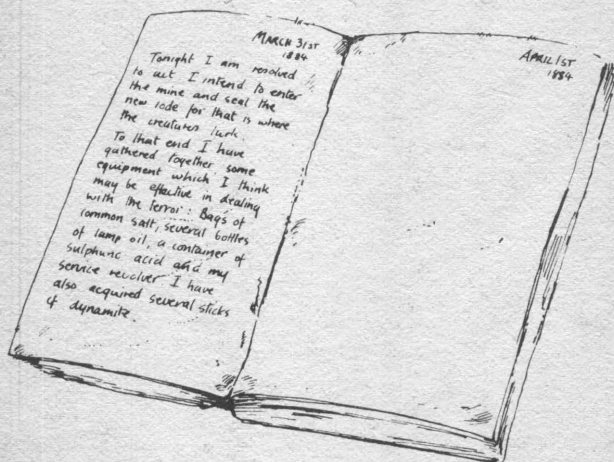 MARCH 31ST
1884
Tonight I am resolved
to act I intend to enter
the mine and seal the
new lode for that is where
the creatures lurk.
To that end I have
gathered together some
equipment which I think
may be effective in dealing
with the terror: Bags of
common salt, several bottles
of lamp oil, a container of
sulphuric acid and my
service revolver I have
also acquired several sticks
of dynamite.
APRIL 1ST
1884